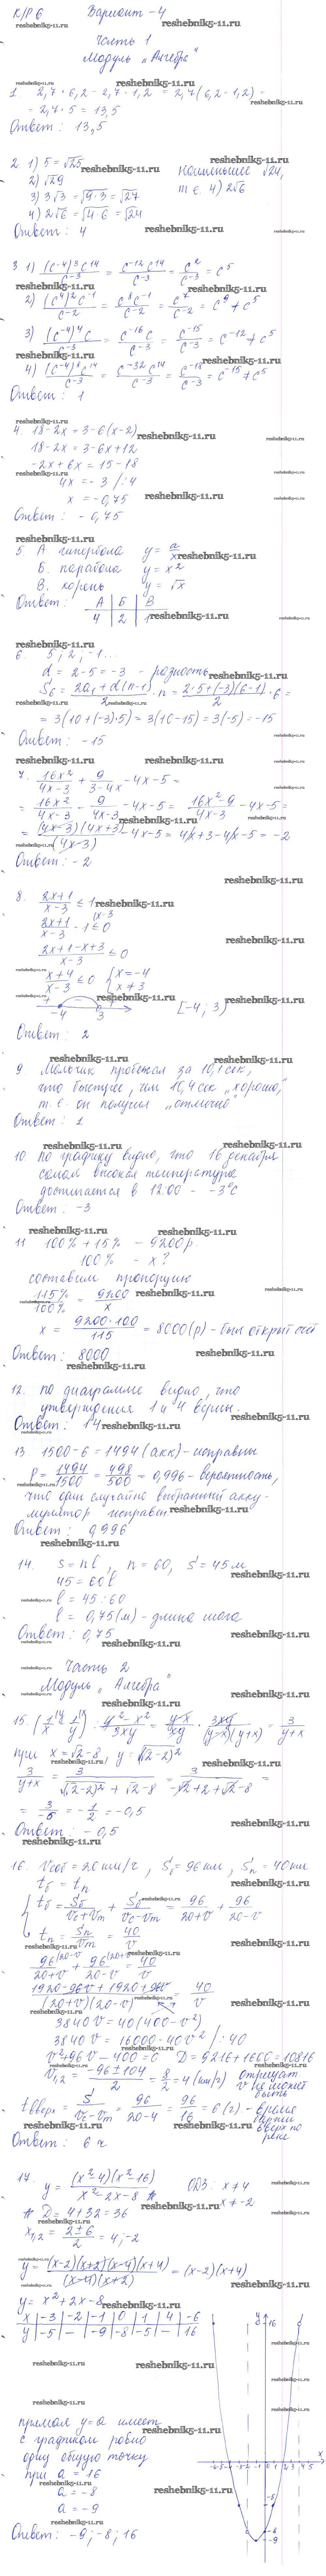 К/Р 6 Вариант - 4
Часть 1
Модуль „Алгебра"
1 2,7 · 6,2 - 2,7 · 1,2 = 2,7(6,2 - 1,2) =
= 2,7 · 5 = 13,5
Ответ: 13,5
2. 1) 5 = √25 наименьшее √24,
2) √29 т.е. 4) 2√6
3) 3√3 = √(9·3) = √27
4) 2√6 = √(4·6) = √24
Ответ: 4
3 1) (c⁻⁴)³c¹⁴/c⁻³ = c⁻¹²c¹⁴/c⁻³ = c²/c⁻³ = c⁵
2) (c⁴)²c⁻¹/c⁻² = c⁸c⁻¹/c⁻² = c⁷/c⁻² = c⁹ ≠ c⁵
3) (c⁻⁴)⁴c/c⁻³ = c⁻¹⁶c/c⁻³ = c⁻¹⁵/c⁻³ = c⁻¹² ≠ c⁵
4) c¹⁴/c⁻³ = c⁻³²c¹⁴/c⁻³ = c⁻¹⁸/c⁻³ = c⁻¹⁵ ≠ c⁵
Ответ: 1
4. 18 - 2x = 3 - 6(x - 2)
18 - 2x = 3 - 6x + 12
-2x + 6x = 15 - 18
4x = -3 /:4
x = -0,75
Ответ: -0,75
5. А гипербола y = a/x
Б. парабола y = x²
В. корень y = √x
Ответ: А | Б | В
4 | 2 | 1
6. 5; 2; -1...
d = 2 - 5 = -3 - разность
S₆ = (2a₁ + d(n-1))/2 · n = (2·5 + (-3)(6-1))/2 · 6 =
= 3(10 + (-3)·5) = 3(10 - 15) = 3(-5) = -15
Ответ: -15
7. 16x²/(4x-3) + 9/(3-4x) - 4x - 5 =
= 16x²/(4x-3) - 9/(4x-3) - 4x - 5 = (16x²-9)/(4x-3) - 4x - 5 =
= (4x-3)(4x+3)/(4x-3) - 4x - 5 = 4x + 3 - 4x - 5 = -2
Ответ: -2
8. (2x+1)/(x-3) ≤ 1
(2x+1)/(x-3) - 1 ≤ 0
(2x+1-x+3)/(x-3) ≤ 0
(x+4)/(x-3) ≤ 0 { x = -4 x ≠ 3
-4 3 [-4; 3)
Ответ: 2
9 Мальчик пробежал за 10,1 сек,
что быстрее, чем 10,4 сек „хорошо",
т.е. он получил „отлично"
Ответ: 1
10. По графику видно, что 16 декабря
самая высокая температура
достигается в 12:00 - -3°C
Ответ: -3
11 100% + 15% - 9200 р.
100% - x?
составим пропорцию
115%/100% = 9200/x
x = 9200·100/115 = 8000(р) - был открыт счёт
Ответ: 8000
12. По диаграмме видно, что
утверждения 1 и 4 верны.
Ответ: 14
13 1500 - 6 = 1494 (акк) - исправны
P = 1494/1500 = 498/500 = 0,996 - вероятность,
что один случайно выбранный акку-
мулятор исправен
Ответ: 0,996
14. s = nl, n = 60, S = 45 м
45 = 60l
l = 45 : 60
l = 0,75(м) - длина шага
Ответ: 0,75
Часть 2
Модуль „Алгебра"
15. (1/x - 1/y) : (y²-x²)/3xy = (y-x)/xy · 3xy/(y-x)(y+x) = 3/(y+x)
при x = √2 - 8 y = √(√2-2)²
3/(y+x) = 3/(√(√2-2)² + √2 - 8) = 3/(-√2+2+√2-8) =
= 3/-6 = -1/2 = -0,5
Ответ: -0,5
16. Vсоб = 20 км/ч, Sб = 96 км, Sп = 40 км
tб = tп
tб = Sб/(Vс+Vт) + Sб/(Vс-Vт) = 96/(20+v) + 96/(20-v)
tп = Sп/Vт = 40/v
96/(20+v) + 96/(20-v) = 40/v
(1920-96v+1920+96v)/((20+v)(20-v)) 40/v
3840v = 40(400 - v²)
3840v = 16000 - 40v² /:40
v² + 96v - 400 = 0 D = 9216 + 1600 = 10816
v₁,₂ = (-96±104)/2 = 8/2 = 4(км/ч) отрицат
v не может быть
tвверх = S/(Vс-Vт) = 96/(20-4) = 96/16 = 6(ч) - время
вверх по
реке
Ответ: 6 ч
17. y = (x²-4)(x²-16)/(x²-2x-8) ОДЗ: x ≠ 4
x ≠ -2
D = 4 + 32 = 36
x₁,₂ = (2±6)/2 = 4; -2
y = (x-2)(x+2)(x-4)(x+4)/(x-4)(x+2) = (x-2)(x+4)
y = x² + 2x - 8
x | -3 | -2 | -1 | 0 | 1 | 4 | -6
y | -5 | - | -9 | -8 | -5 | - | 16
прямая y = a имеет
с графиком ровно
одну общую точку
при a = 16
a = -8
a = -9
Ответ: -9; -8; 16